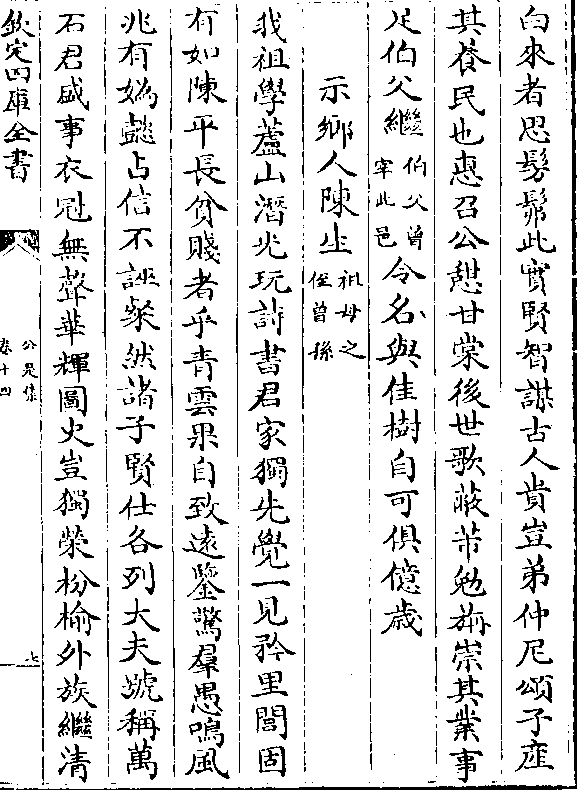 白來者思髣髴此實賢智謀古人貴豈弟仲尼頌子產
其養民也惠召公憇甘棠後世歌蔽芾勉旃崇其業事
足伯父繼伯父曾宰此邑令名與佳樹自可俱億歲
示鄉人陳生祖母之侄曾孫
我祖學蘆山潛光玩詩書君家獨先覺一見矜里閭固
有如陳平長貧賤者乎青雲果自致遠鑒驚羣愚鳴風
兆有媯懿占信不誣粲然諸子賢仕各列大夫號稱萬
石君盛事衣冠無聲華輝圖史豈獨榮枌榆外族繼清
欽定四庫全書
公是集
卷十四
七